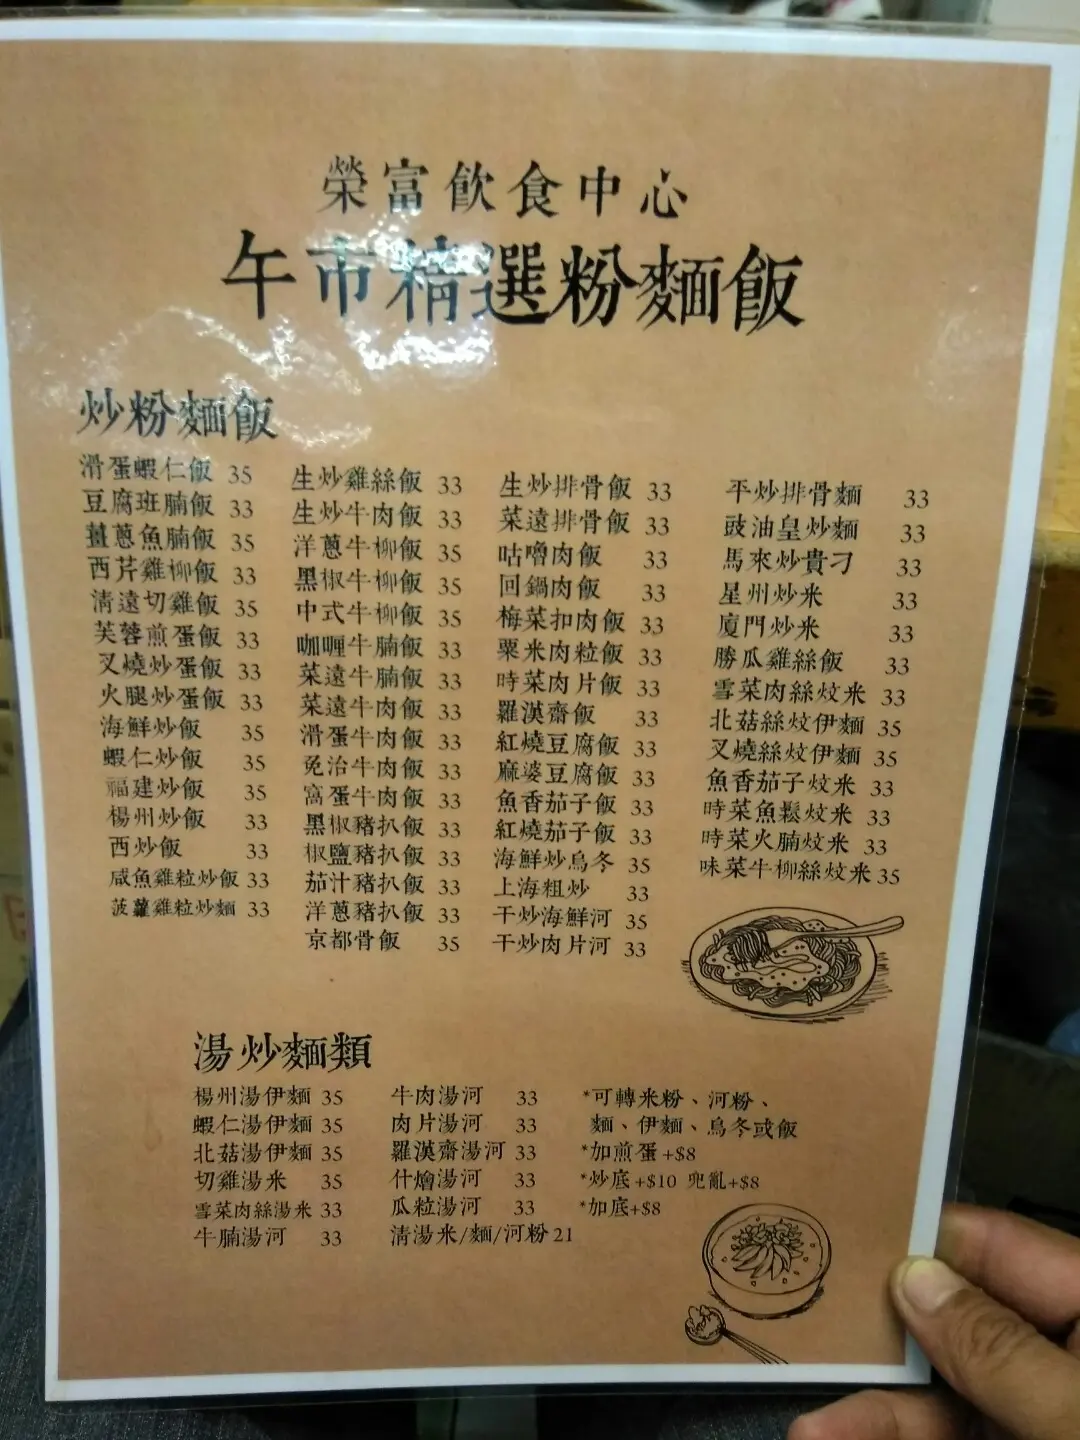 榮富飲食中心
午市精選粉麵飯
炒粉麵飯
滑蛋蝦仁飯 35
豆腐班腩飯 33
薑蔥魚腩飯 35
西芹雞柳飯 33
清遠切雞飯 35
芙蓉煎蛋飯 33
叉燒炒蛋飯 33
火腿炒蛋飯 33
海鮮炒飯 35
蝦仁炒飯 35
福建炒飯 35
楊州炒飯 33
西炒飯 33
咸魚雞粒炒飯 33
菠蘿雞粒炒麵 33
生炒雞絲飯 33
生炒牛肉飯 33
洋蔥牛柳飯 35
黑椒牛柳飯 35
中式牛柳飯 35
咖喱牛腩飯 33
菜遠牛腩飯 33
菜遠牛肉飯 33
滑蛋牛肉飯 33
免治牛肉飯 33
窩蛋牛肉飯 33
黑椒豬扒飯 33
椒鹽豬扒飯 33
茄汁豬扒飯 33
洋蔥豬扒飯 33
京都骨飯 35
生炒排骨飯 33
菜遠排骨飯 33
咕嚕肉飯 33
回鍋肉飯 33
梅菜扣肉飯 33
粟米肉粒飯 33
時菜肉片飯 33
羅漢齋飯 33
紅燒豆腐飯 33
麻婆豆腐飯 33
魚香茄子飯 33
紅燒茄子飯 33
海鮮炒烏冬 35
上海粗炒 33
干炒海鮮河 35
干炒肉片河 33
平炒排骨麵 33
豉油皇炒麵 33
馬來炒貴刁 33
星州炒米 33
廈門炒米 33
勝瓜雞絲飯 33
雪菜肉絲炆米 33
北菇絲炆伊麵 35
叉燒絲炆伊麵 35
魚香茄子炆米 33
時菜魚鬆炆米 33
時菜火腩炆米 33
味菜牛柳絲炆米 35
湯炒麵類
楊州湯伊麵 35
蝦仁湯伊麵 35
北菇湯伊麵 35
切雞湯米 35
雪菜肉絲湯米 33
牛腩湯河 33
牛肉湯河 33
肉片湯河 33
羅漢齋湯河 33
什燴湯河 33
瓜粒湯河 33
清湯米/麵/河粉 21
*可轉米粉、河粉、
麵、伊麵、烏冬或飯
*加煎蛋+$8
*炒底+$10 兜亂+$8
*加底+$8